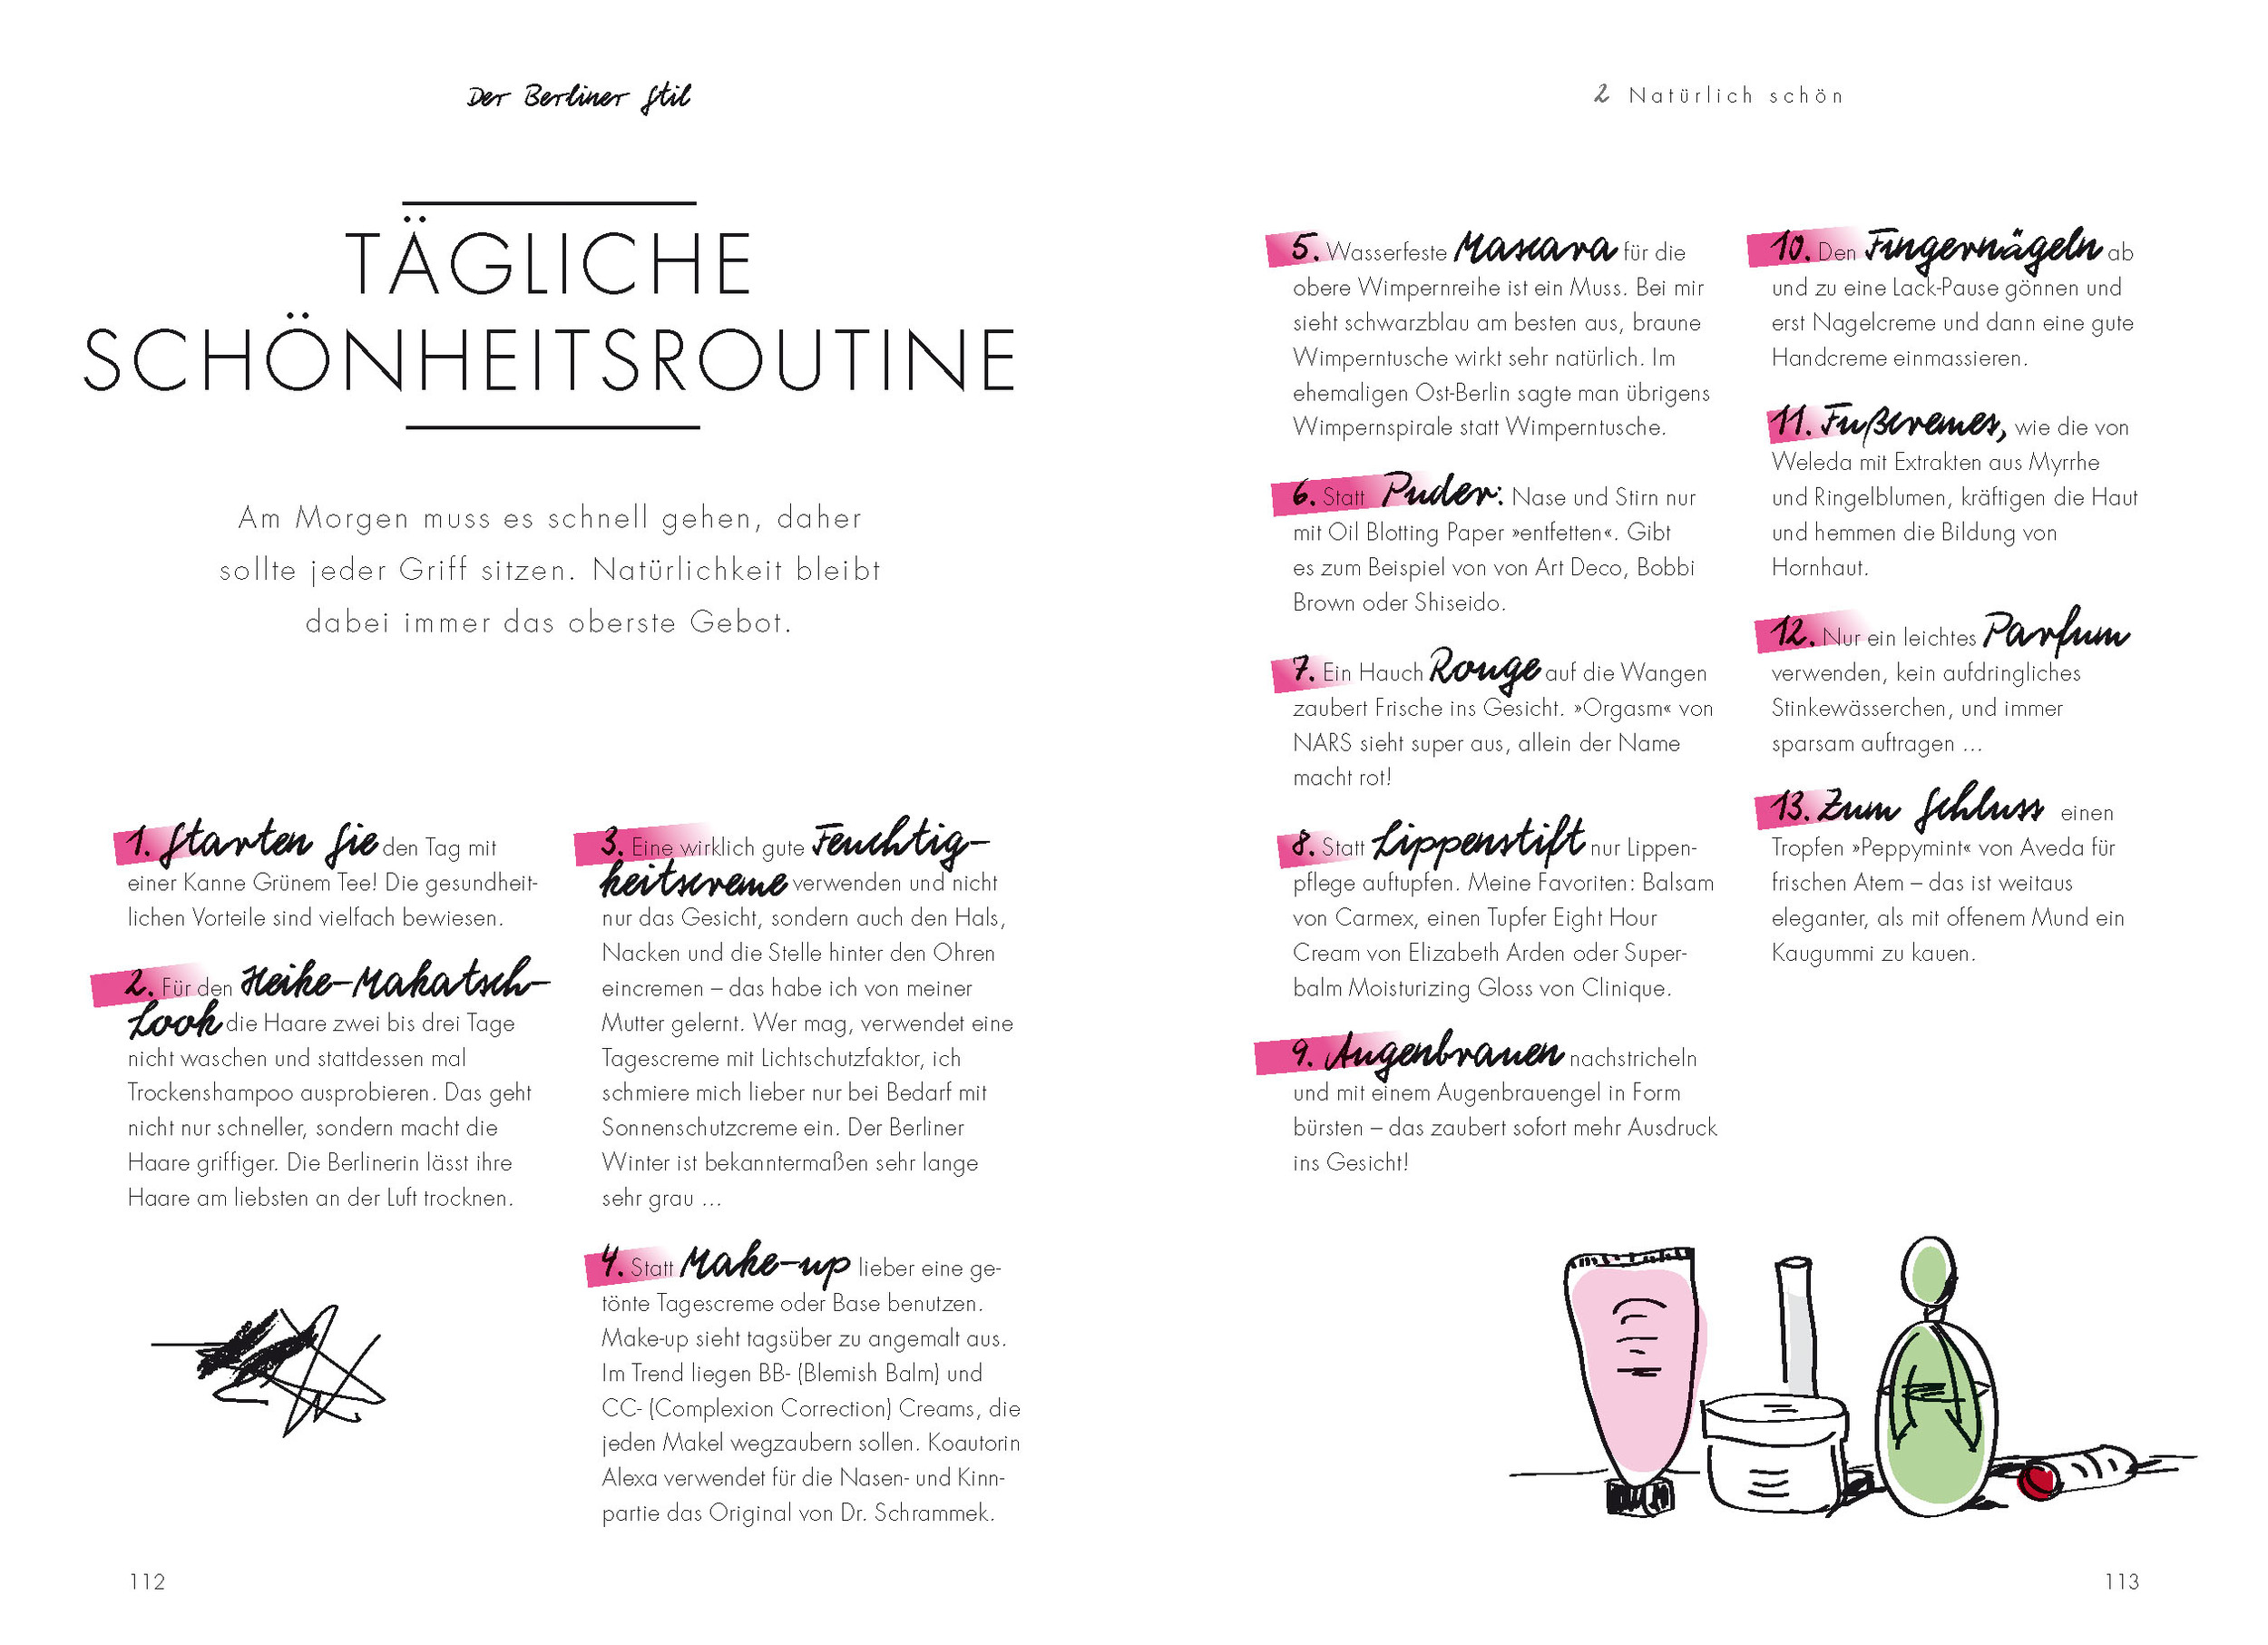 Der Berliner Stil
TÄGLICHE
SCHÖNHEITSROUTINE
Am Morgen muss es schnell gehen, daher
sollte jeder Griff sitzen. Natürlichkeit bleibt
dabei immer das oberste Gebot.
1. Starten Sie den Tag mit
einer Kanne Grünem Tee! Die gesundheit-
lichen Vorteile sind vielfach bewiesen.
2. Für den Heike-Makatsch-
Look die Haare zwei bis drei Tage
nicht waschen und stattdessen mal
Trockenshampoo ausprobieren. Das geht
nicht nur schneller, sondern macht die
Haare griffiger. Die Berlinerin lässt ihre
Haare am liebsten an der Luft trocknen.
3. Eine wirklich gute Feuchtig-
keitscreme verwenden und nicht
nur das Gesicht, sondern auch den Hals,
Nacken und die Stelle hinter den Ohren
eincremen – das habe ich von meiner
Mutter gelernt. Wer mag, verwendet eine
Tagescreme mit Lichtschutzfaktor, ich
schmiere mich lieber nur bei Bedarf mit
Sonnenschutzcreme ein. Der Berliner
Winter ist bekanntermaßen sehr lange
sehr grau ...
4. Statt Make-up lieber eine ge-
tönte Tagescreme oder Base benutzen.
Make-up sieht tagsüber zu angemalt aus.
Im Trend liegen BB- (Blemish Balm) und
CC- (Complexion Correction) Creams, die
jeden Makel wegzaubern sollen. Koautorin
Alexa verwendet für die Nasen- und Kinn-
partie das Original von Dr. Schrammek.
112
2 Natürlich schön
5. Wasserfeste Mascara für die
obere Wimpernreihe ist ein Muss. Bei mir
sieht schwarzblau am besten aus, braune
Wimperntusche wirkt sehr natürlich. Im
ehemaligen Ost-Berlin sagte man übrigens
Wimpernspirale statt Wimperntusche.
6. Statt Puder: Nase und Stirn nur
mit Oil Blotting Paper »entfetten«. Gibt
es zum Beispiel von von Art Deco, Bobbi
Brown oder Shiseido.
7. Ein Hauch Rouge auf die Wangen
zaubert Frische ins Gesicht. »Orgasm« von
NARS sieht super aus, allein der Name
macht rot!
8. Statt Lippenstift nur Lippen-
pflege auftupfen. Meine Favoriten: Balsam
von Carmex, einen Tupfer Eight Hour
Cream von Elizabeth Arden oder Super-
balm Moisturizing Gloss von Clinique.
9. Augenbrauen nachstricheln
und mit einem Augenbrauengel in Form
bürsten – das zaubert sofort mehr Ausdruck
ins Gesicht!
10. Den Fingernägeln ab
und zu eine Lack-Pause gönnen und
erst Nagelcreme und dann eine gute
Handcreme einmassieren.
11. Fußcremes, wie die von
Weleda mit Extrakten aus Myrrhe
und Ringelblumen, kräftigen die Haut
und hemmen die Bildung von
Hornhaut.
12. Nur ein leichtes Parfum
verwenden, kein aufdringliches
Stinkewässerchen, und immer
sparsam auftragen ...
13. Zum Schluss einen
Tropfen »Peppymint« von Aveda für
frischen Atem – das ist weitaus
eleganter, als mit offenem Mund ein
Kaugummi zu kauen.
113